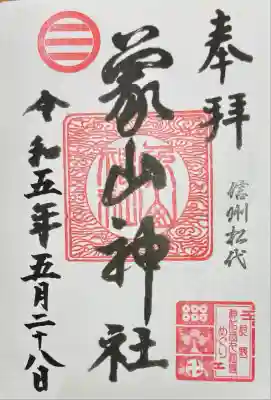 奉拝
信州松代
象山神社
令和五年五月二十八日